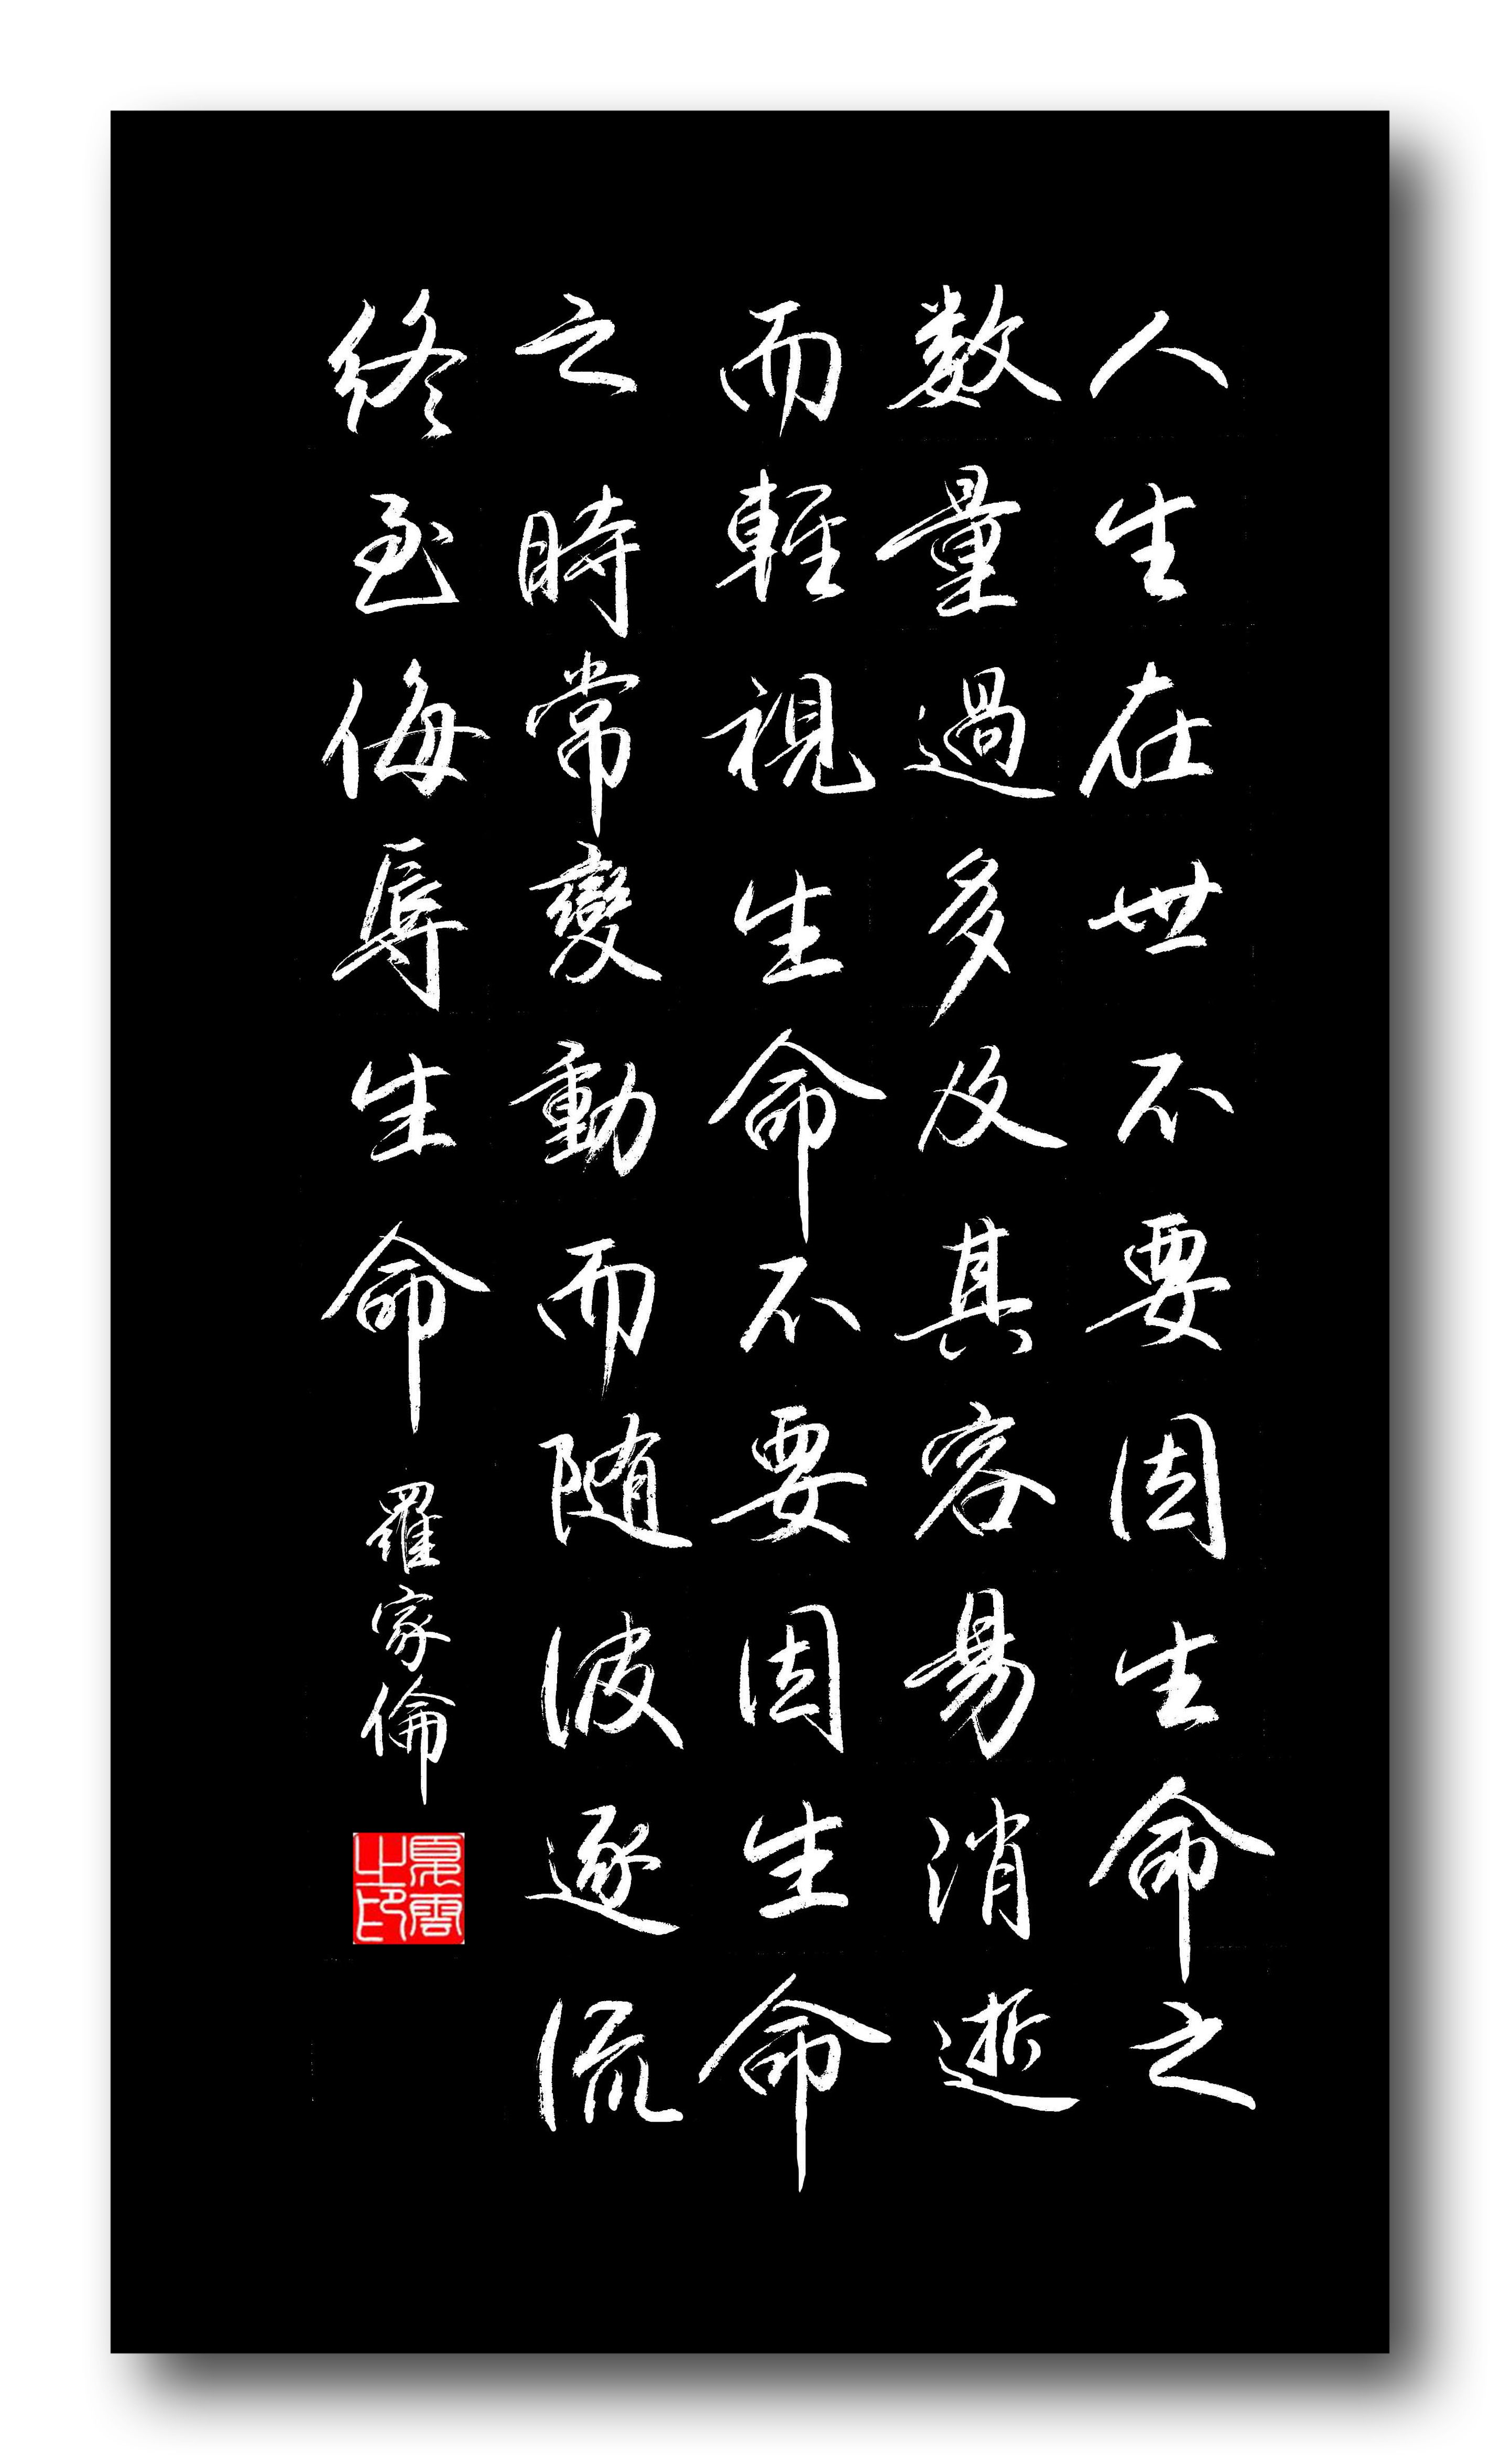 人生在世不要因生命之
数量過多及其容易消逝
而輕視生命不要因生命
之時常變動而随波逐流
終至侮辱生命 羅家倫
夏雲之印